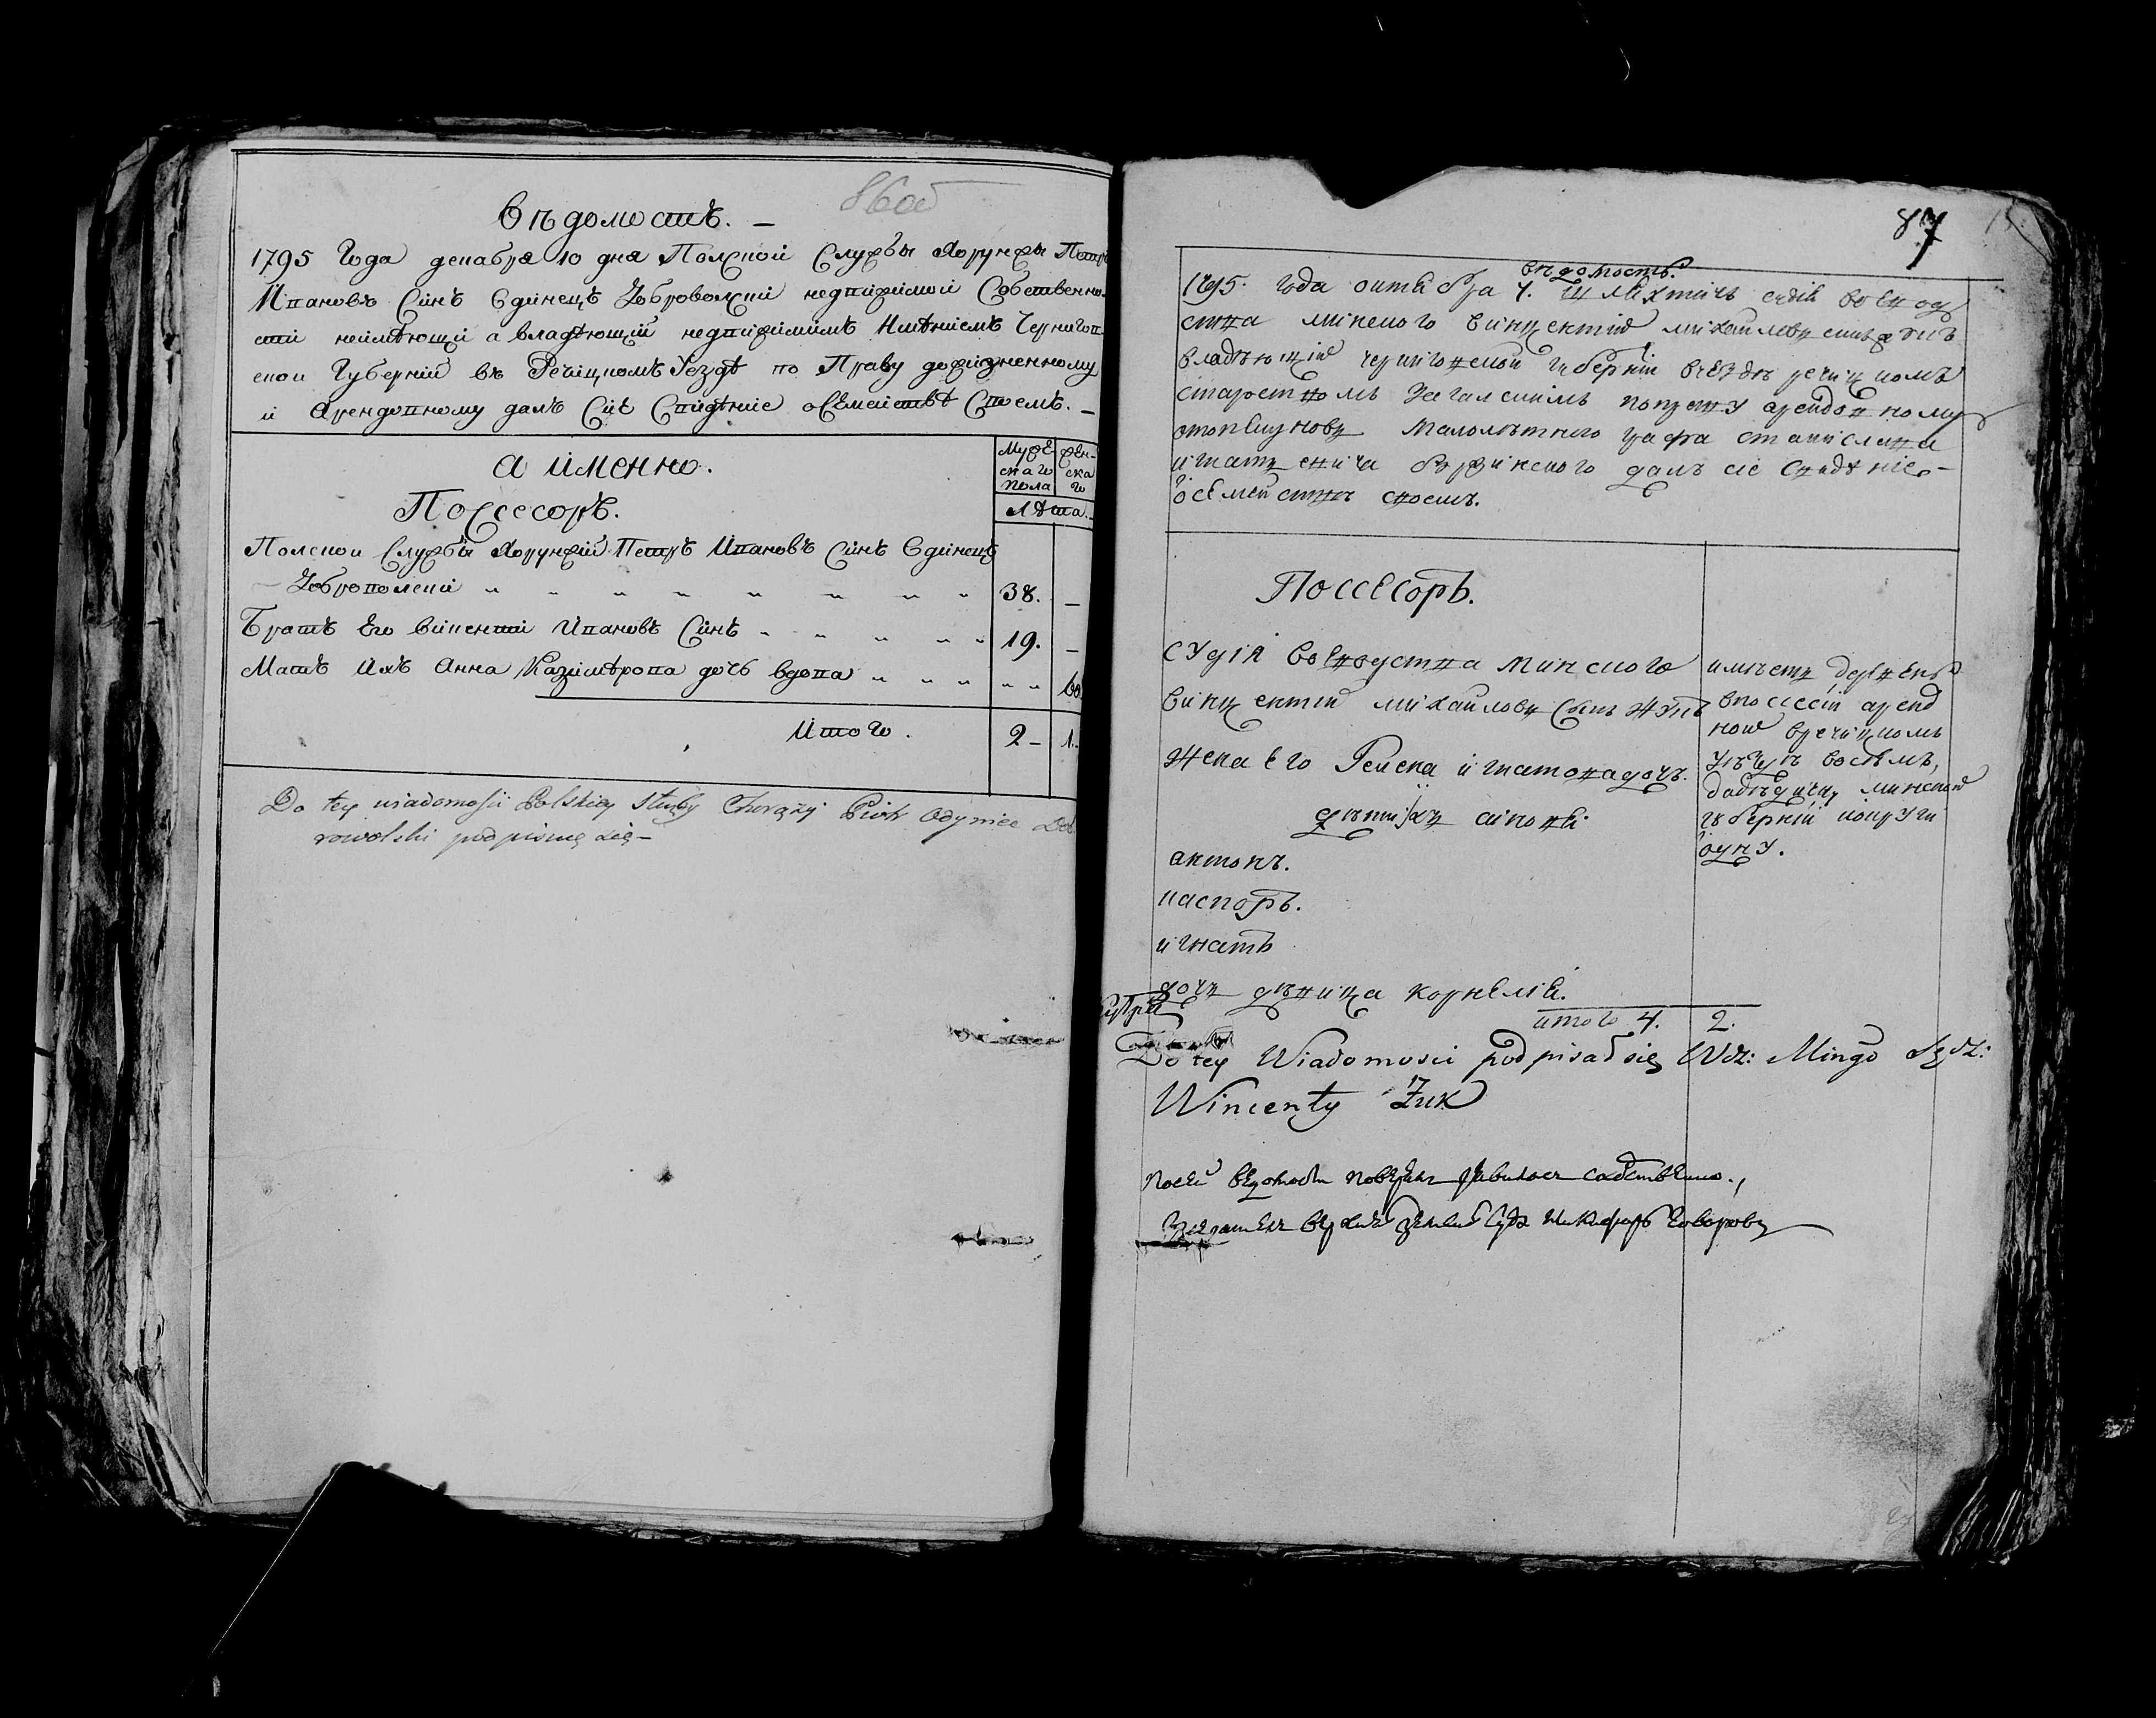 86об
Вѣдомость. —
1795 Года декабря 10 дня Полской Службы Хорунжы Петръ
Ивановъ Синъ Единецъ Добровольскій недвижимой Собственно-
сти неимѣющій а владѣющій недвижимимъ Имѣніемъ Чернигов-
ской Губерніи въ Речицкомъ Уездѣ по Праву дожизненному
и Арендовному далъ Сіе Свидѣніе о Семействѣ Своемъ. —
А именно.
Мужескаго пола
женскаго
Лѣта.
Поссесоръ.
Полской Службы Хорунжій Петръ Ивановъ Синъ Единецъ
Доброволскій 38. —
Братъ Его Викентій Ивановъ Синъ 19. —
Мать Ихъ Анна Казимѣрова дочь вдова 60
Итого. 2 – 1.
Do tey wiadomości Polskiey Służby Chorąży Piotr Odyniec Dob
rowolski podpisuię się —
87
вѣдомость.
1795. года октября 4. судія воевод
ства минского винцентій михайловъ синъ жукъ
владѣющій черниговской губерніи вуѣздѣ речицкомъ
староством Загалскимъ поправу арендовному
отопекуновъ малолѣтнего графа станислава
игнатъевича далъ сіе свидѣніе —
осемействѣ своемъ.
Поссесоръ.
судія воеводства минского
винцентій михайловъ синъ жукъ
жена его Гелена игнатовадочъ.
ихъ синови
антонъ.
каспоръ.
игнатъ
дочъ дѣвица корнеліа.
имѣетъ деревень
впосесіи аренд
ной вречицкомъ
уѣздѣ восемъ,
минской
губерніи
одну.
итого 4. 2.
Do tey Wiadomosci podpisał się Wdz: Mingo Sędz:
Wincenty Żuk
посей ведомости поверялъ явилось
Заседатель верхнего земскаго суда Никифоръ Говоровъ